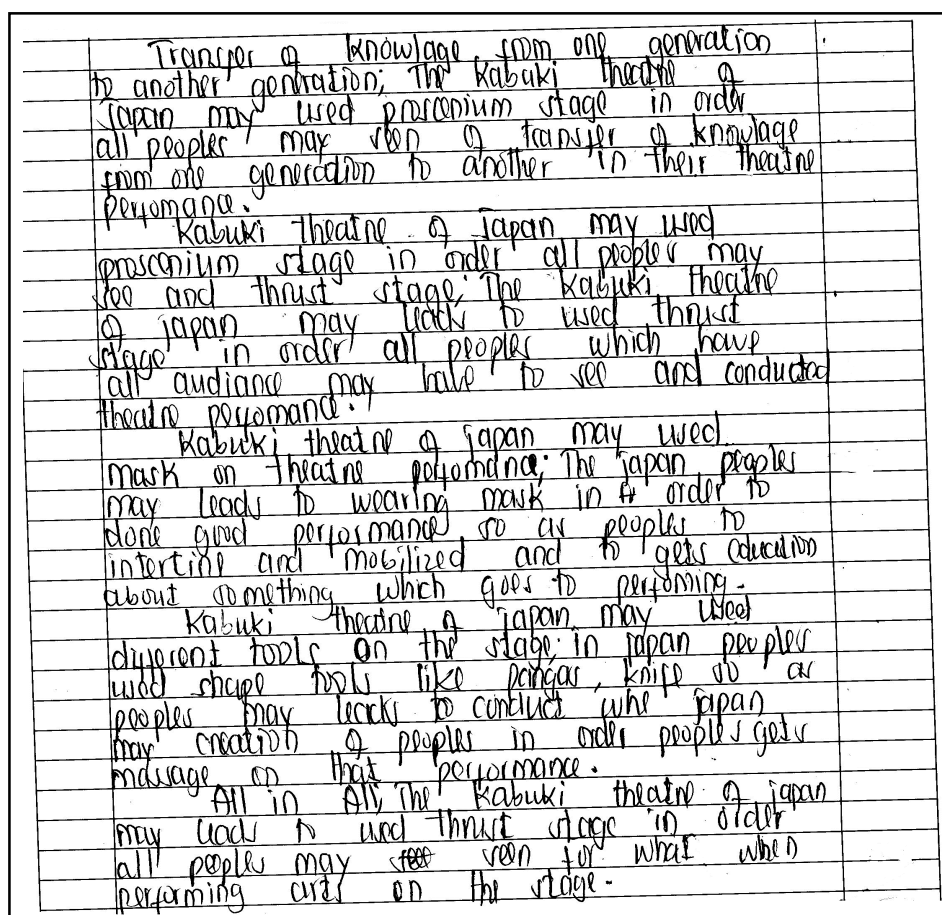 Transfer of knowlage from one generation
to another genration; The Kabuki theatre of
japan may used proscenium stage in order
all peoples may seen of transfer of knowlage
from one generation to another in their theatre
perfomance.
Kabuki theatre of japan may used
proscenium stage in order all peoples may
see and thrust stage; The kabuki theatre
of japan may leads to used thrust
stage in order all peoples which have
all audiance may have to see and conducted
theatre perfomance.
Kabuki theatre of japan may used
mask on theatre perfomance; The japan peoples
may leads to wearing mask in order to
done good performance so as peoples to
intertine and mobilized and to gets education
about something which goes to perfoming.
Kabuki theatre of japan may used
different tools on the stage; in japan peoples
used shape tools like pangas, knife so as
peoples may leads to conduct whe japan
may creation of peoples in order peoples gets
massage on that performance.
All in All, The kabuki theatre of japan
may leads to used thrust stage in order
all peoples may seen for what when
performing arts on the stage.